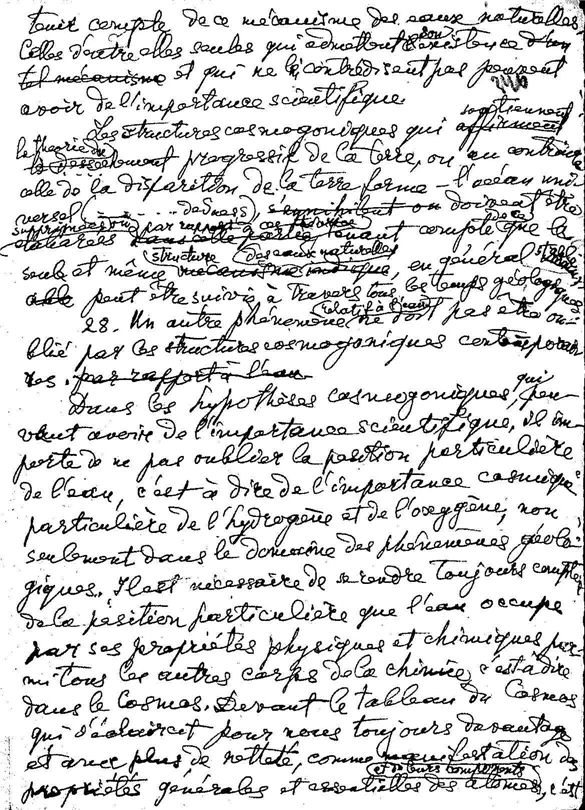 tenir compte de ce mécanisme des eaux naturelles
Celles d'entre elles seules qui admettent son existence d'un
tel mécanisme et qui ne le contredisent pas peuvent
avoir de l'importance scientifique.
Les structures cosmogoniques qui soutiennent affirment
la théorie du desséchement progressif de la terre, ou au contraire
celle de la disparition de la terre ferme – l'océan uni-
versel ( ..... de Suess), s'annihilent ou doivent être
supprimées par rapport à ces tenant compte que la
structure des eaux naturelles
seule et même mécanisme, en général
peut être suivie à travers tous les temps géologiques
28. Un autre phénomène relatif à l'eau ne doit pas être ou-
blié par les structures cosmogoniques contemporai-
nes. par rapport à l'eau
Dans les hypothèses cosmogoniques, qui peu-
vent avoir de l'importance scientifique, il im-
porte de ne pas oublier la position particulière
de l'eau, c'est à dire de l'importance cosmique
particulière de l'hydrogène et de l'oxygène, non
seulement dans le domaine des phénomènes géolo-
giques. Il est nécessaire de se rendre toujours compte
de la position particulière que l'eau occupe
par ses propriétés physiques et chimiques par-
mi tous les autres corps de la chimie, c'est à dire
dans le Cosmos. Devant le tableau du Cosmos
qui s'éclaircit pour nous toujours davantage
et avec plus de netteté, comme manifestation des
propriétés générales et essentielles des atomes, et de leurs composants c'est